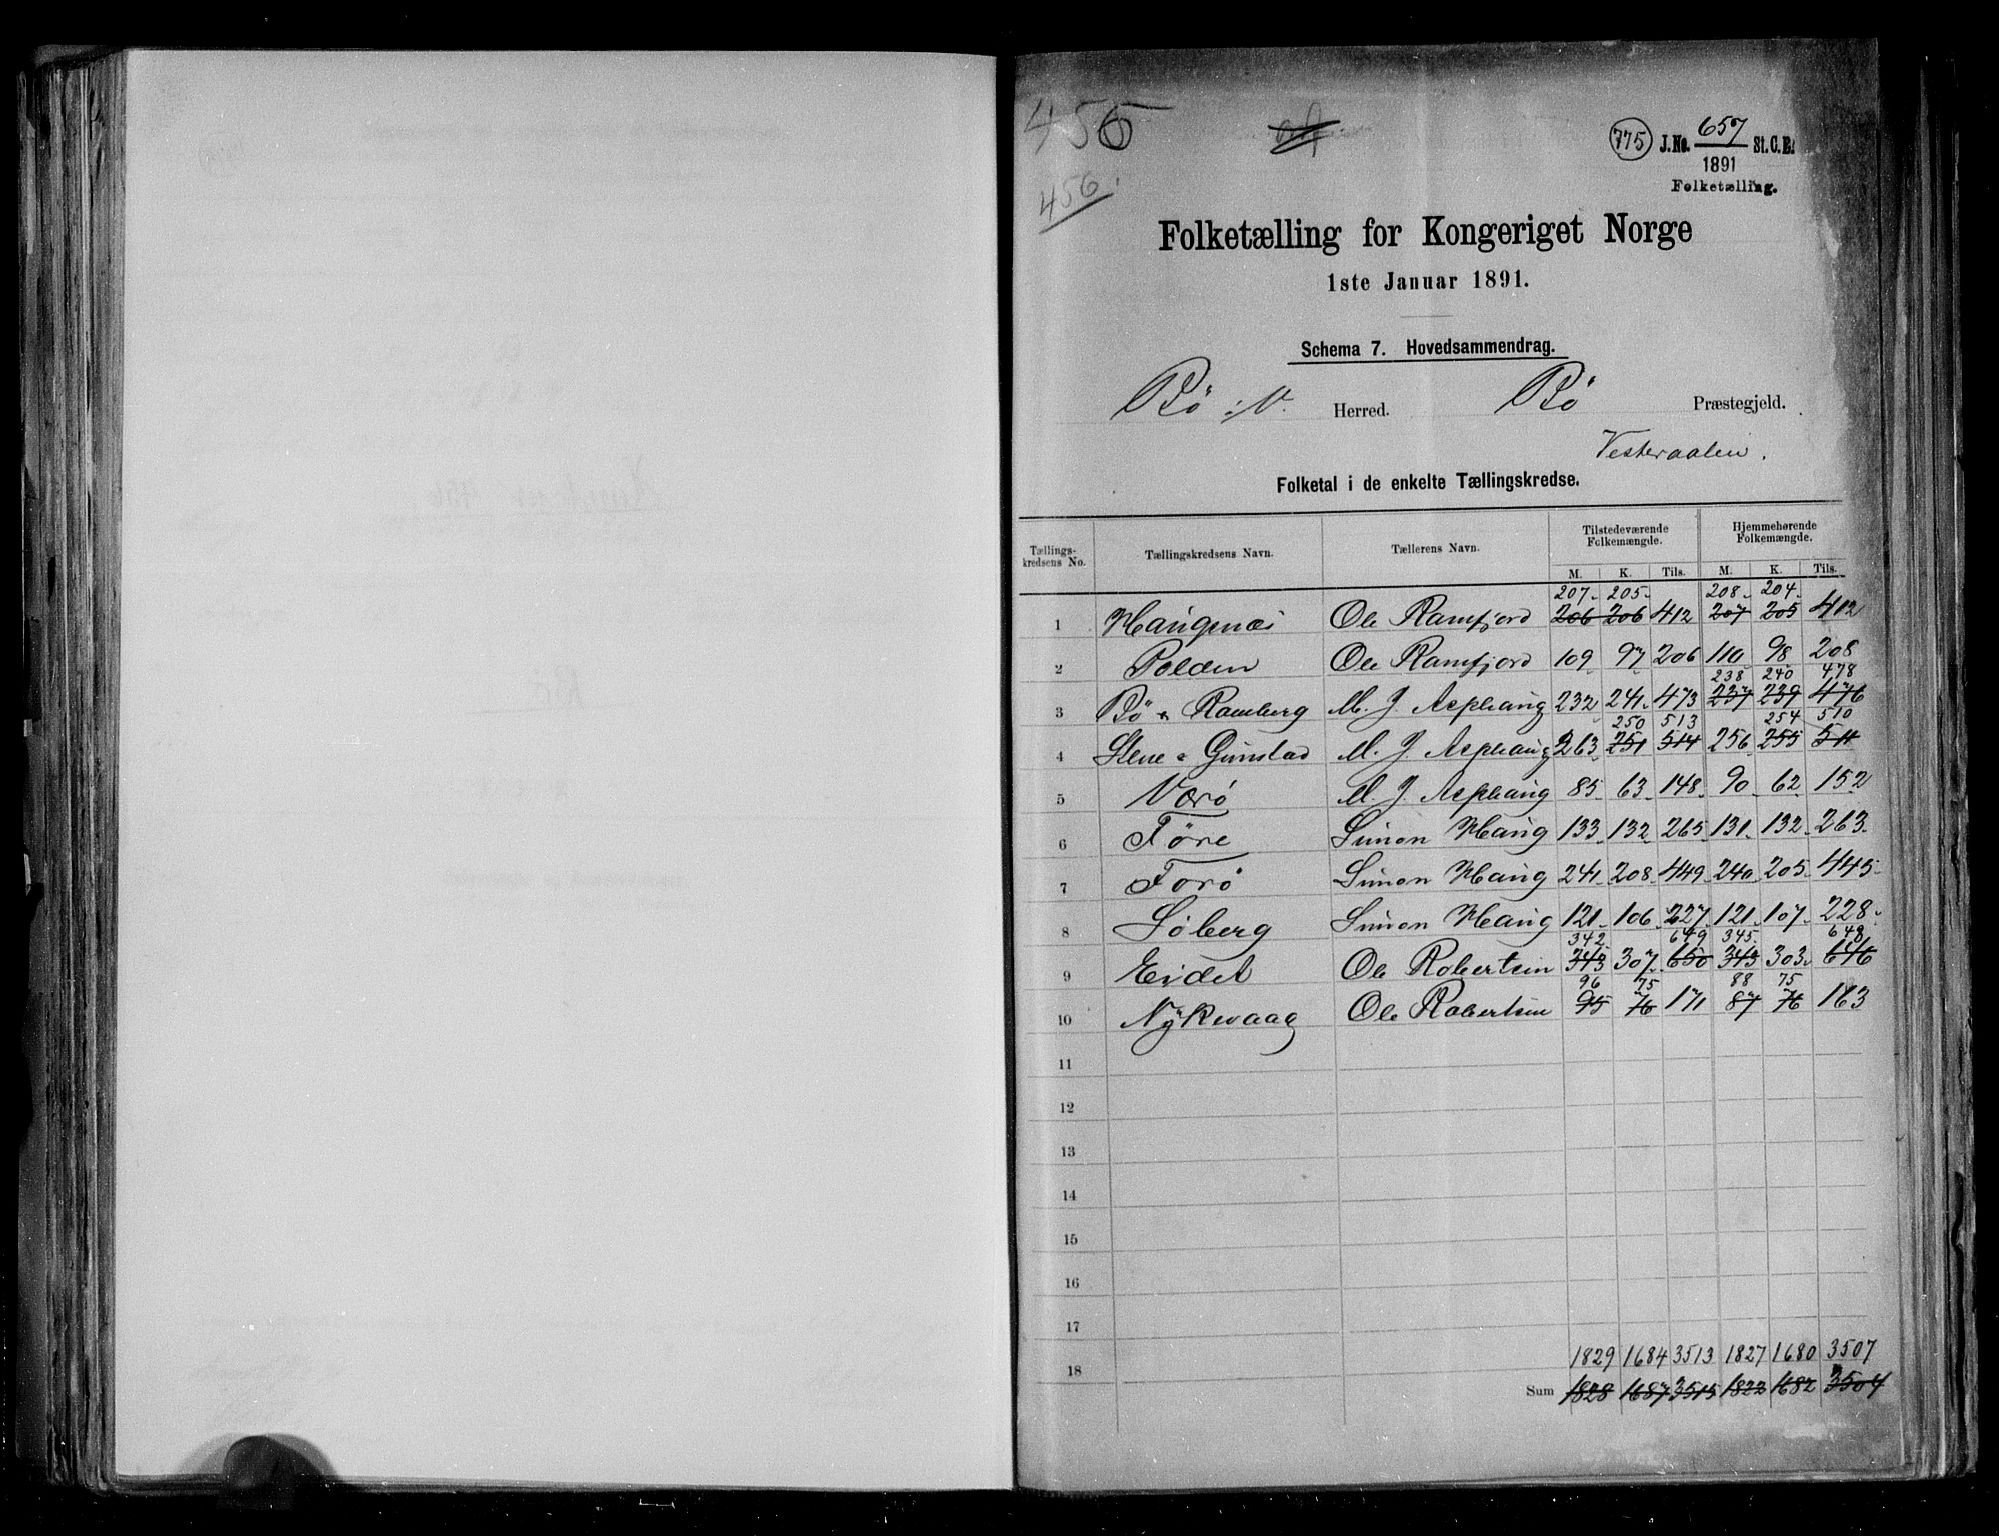 456
456
775 J.No. 657 St.C.B.
1891
Folketælling.
Folketælling for Kongeriget Norge
1ste Januar 1891.
Schema 7. Hovedsammendrag.
Bö i V. Herred. Bö Præstegjeld.
Vesteraalen.
Folketal i de enkelte Tællingskredse.
Tællings-kredsens No. Tællingskredsens Navn. Tællerens Navn. Tilstedeværende Folkemængde. Hjemmehørende Folkemængde.
M. K. Tils. M. K. Tils.
207 205 208 204
1 Haugsnæs Ole Ramfjord 206 206 412 207 205 412
2 Polden Ole Ramfjord 109 97 206 110 98 208
238 240 478
3 Bö & Ramberg M. J. Asphaug 232 241 473 237 239 476
250 513 254 510
4 Stene & Gimstad M. J. Asphaug 263 251 514 256 255 511
5 Værö M. J. Asphaug 85 63 148 90 62 152
6 Före Simon Haug 133 132 265 131 132 263
7 Forö Simon Haug 241 208 449 240 205 445
8 Söberg Simon Haug 121 106 227 121 107 228
342 649 345 648
9 Eidet Ole Robertsen 343 307 650 343 303 646
96 75 88 75
10 Nykvaag Ole Robertsen 95 76 171 87 76 163
11
12
13
14
15
16
17
18
1829 1684 3513 1827 1680 3507
Sum 1828 1687 3515 1822 1682 3504